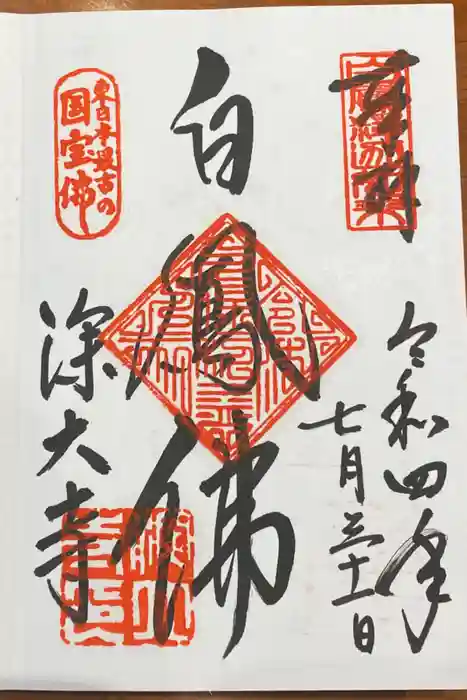 奉拝
令和四年
七月三十一日
白鳳佛
深大寺
東日本最古の
国宝佛